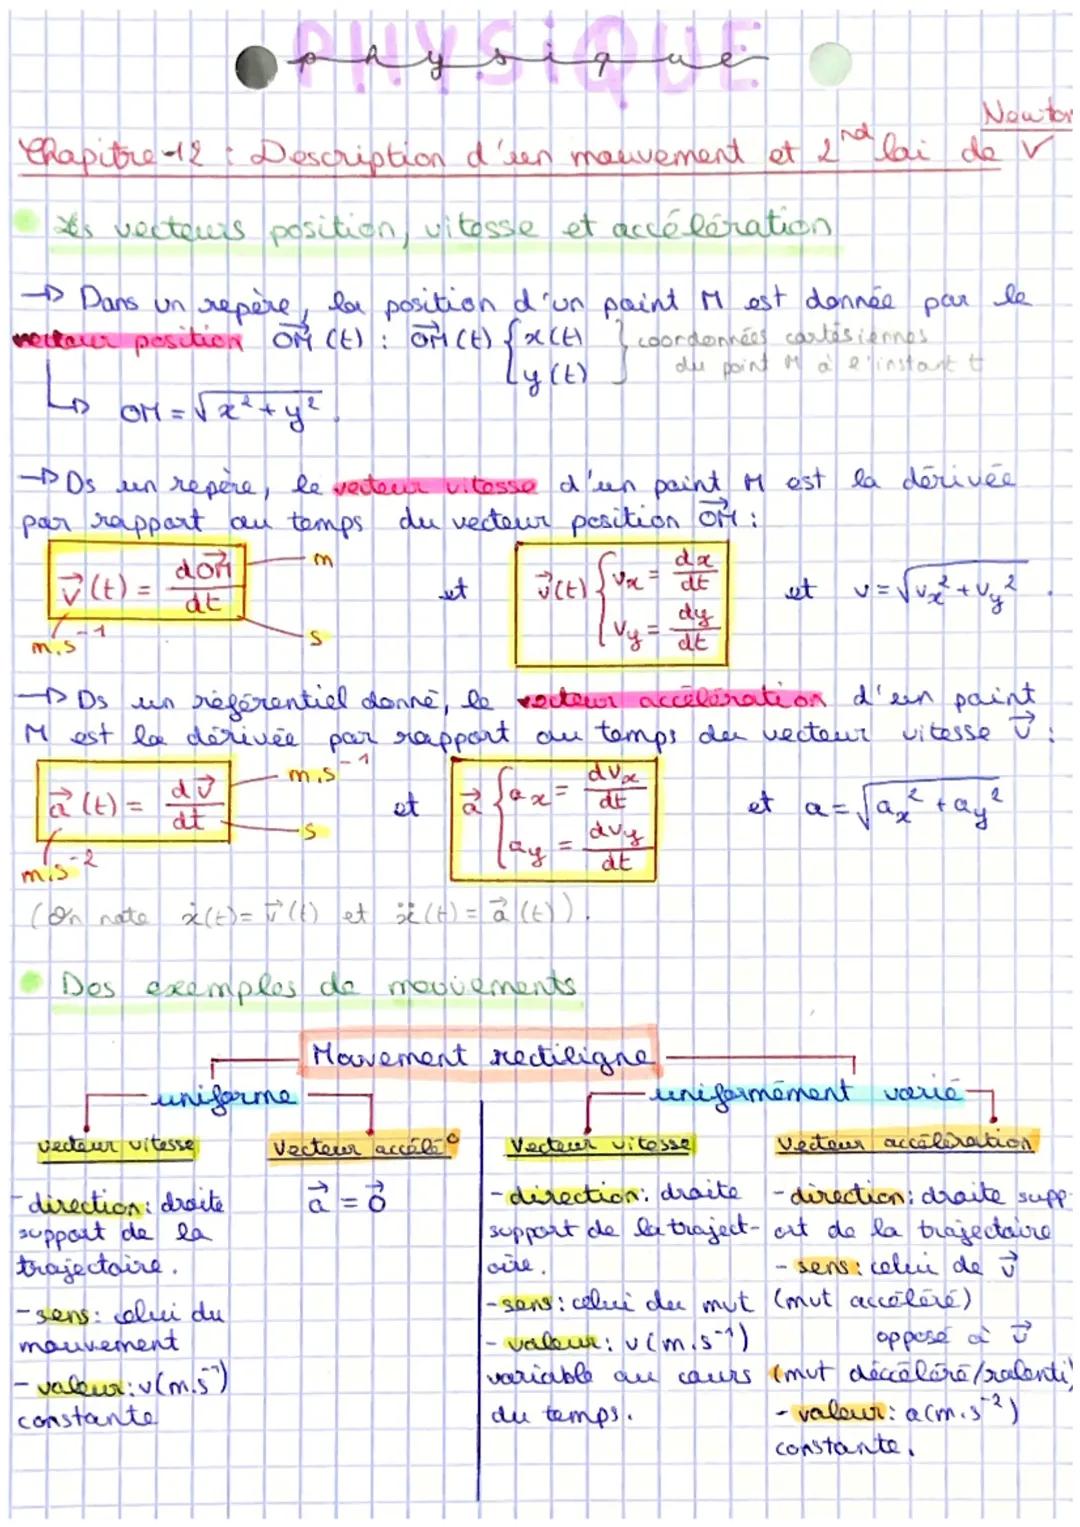 PHYSIQUE
physique
Newton
Chapitre 12 : Description d'un mouvement et 2nd loi de V
Les vecteurs position, vitesse et accélération
→ Dans un repère, la position d'un point M est donnée par le
vecteur position OM⃗ (t) : OM⃗ (t) { x(t) } coordonnées cartésiennes
y(t) du point M à l'instant t
↳ OM = √x² + y².
→ Ds un repère, le vecteur vitesse d'un point M est la dérivée
par rapport au temps du vecteur position OM⃗ :
v⃗(t) = dOM⃗/dt m et v⃗(t) { vx = dx/dt et v = √vx² + vy².
m.s⁻¹ s vy = dy/dt
→ Ds un référentiel donné, le vecteur accélération d'un point
M est la dérivée par rapport au temps du vecteur vitesse v⃗ :
a⃗(t) = dv⃗/dt m.s⁻¹ et a⃗ { ax = dvx/dt et a = √ax² + ay²
m.s⁻² s ay = dvy/dt
(On note ẋ(t) = v⃗(t) et ẍ(t) = a⃗(t)).
Des exemples de mouvements
Mouvement rectiligne
uniforme
vecteur vitesse
- direction: droite
support de la
trajectoire.
- sens: celui du
mouvement
- valeur: v(m.s⁻¹)
constante
Vecteur accélé°
a⃗ = 0⃗
uniformément varié
Vecteur vitesse
- direction: droite
support de la traject-
oire.
- sens: celui du mvt
- valeur: v(m.s⁻¹)
variable au cours
du temps.
Vecteur accélération
- direction: droite supp-
ort de la trajectoire
- sens: celui de v⃗
(mvt accéléré)
opposé à v⃗
(mvt décéléré/ralenti)
- valeur: a(m.s⁻²)
constante.